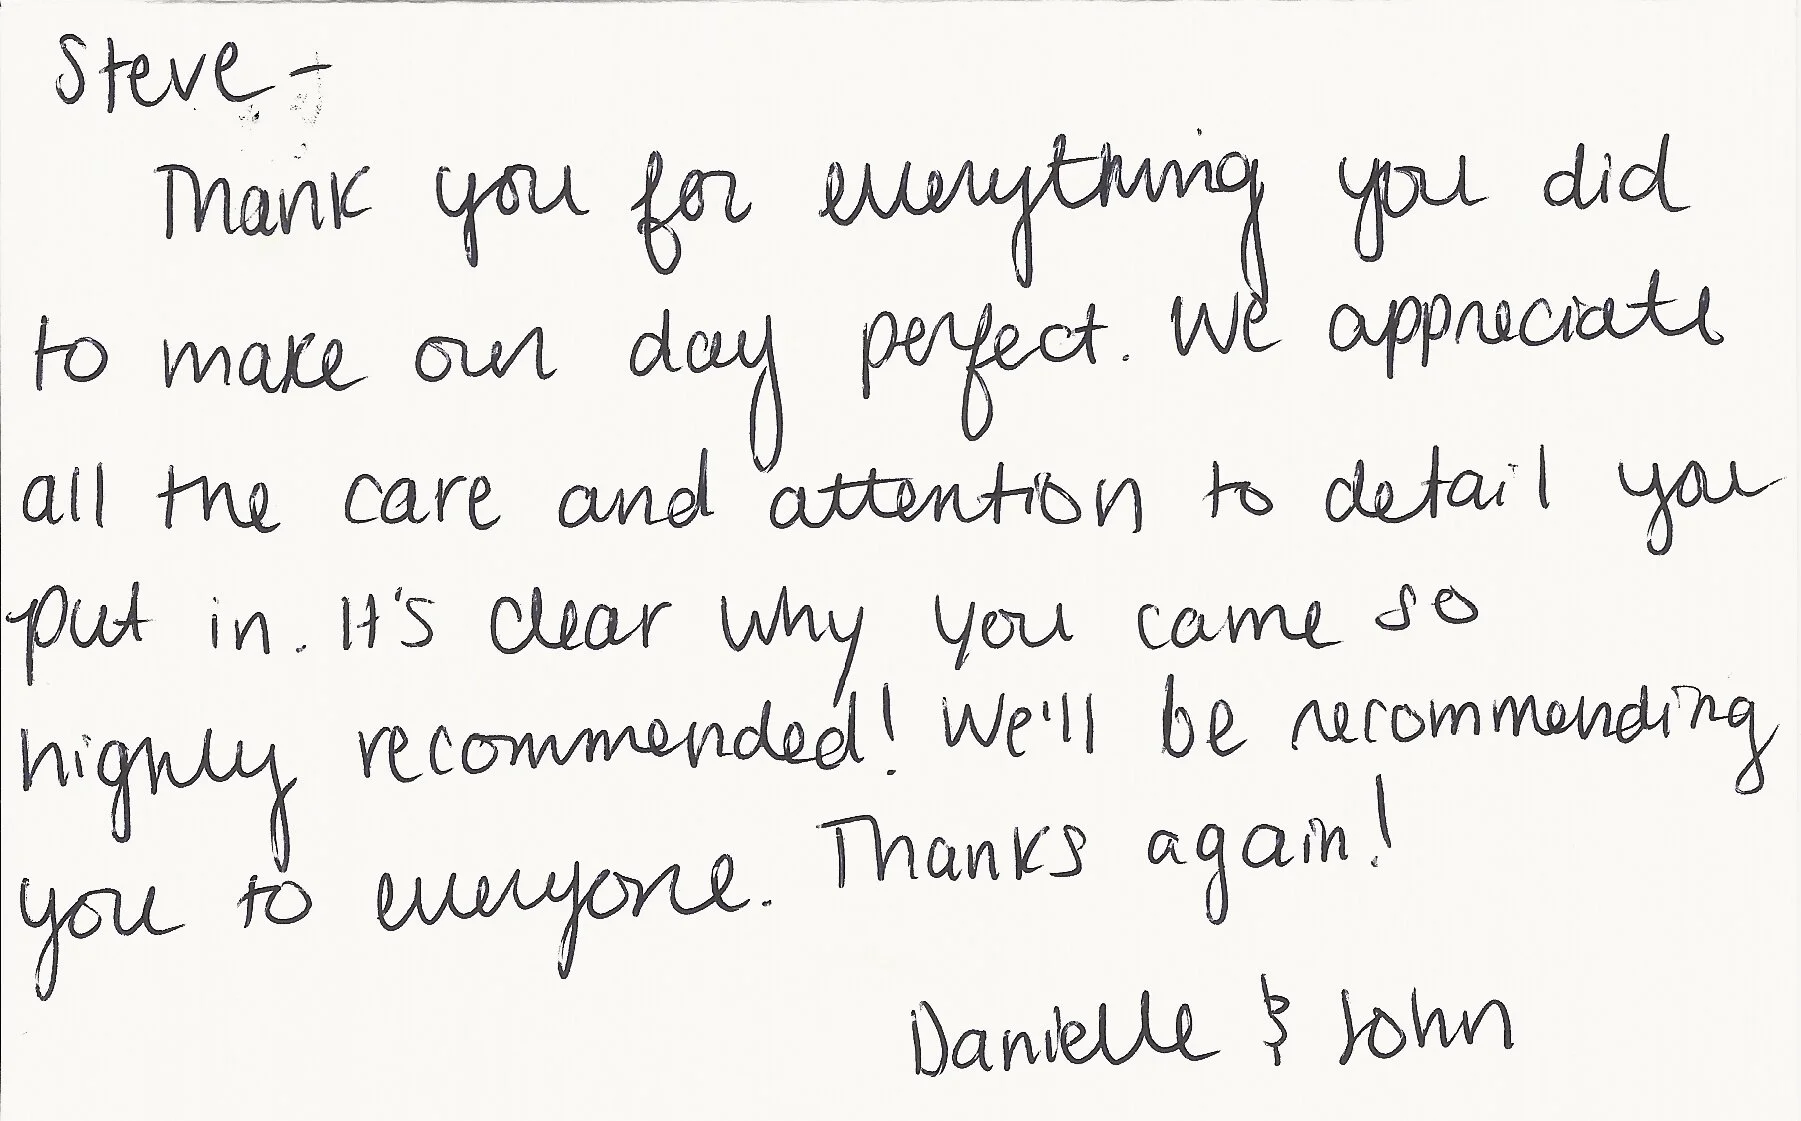 Steve -
Thank you for everything you did
to make our day perfect. We appreciate
all the care and attention to detail you
put in. It's clear why you came so
highly recommended! We'll be recommending
you to everyone. Thanks again!
Danielle & John